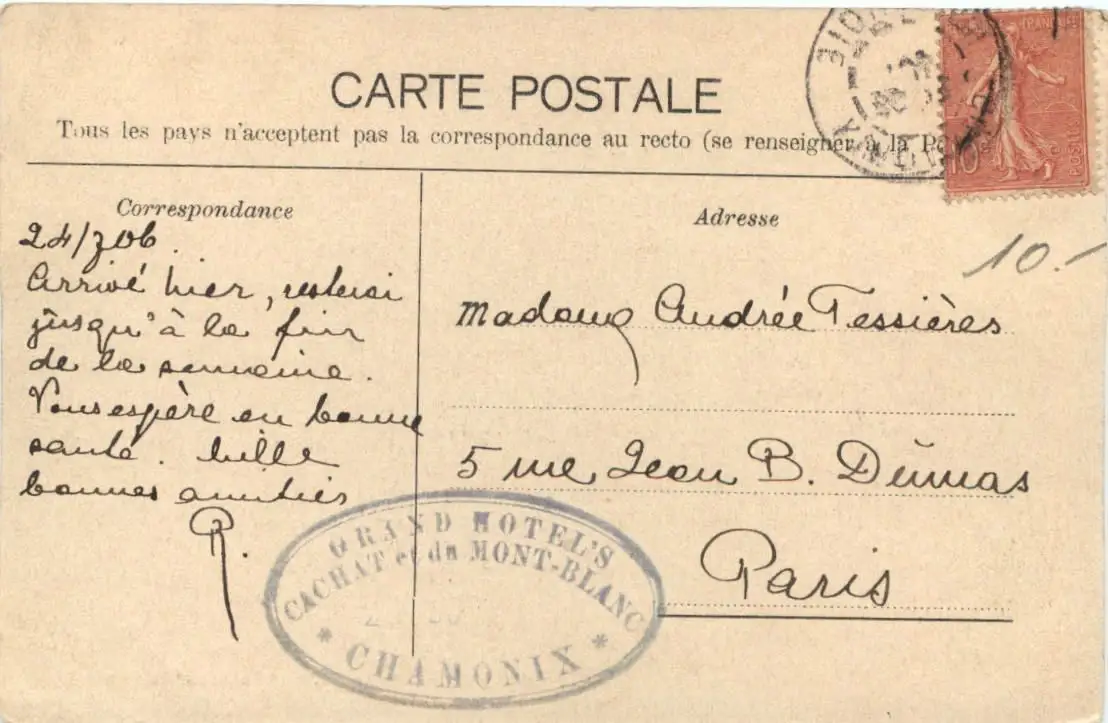 CARTE POSTALE
Tous les pays n'acceptent pas la correspondance au recto (se renseigner à la Po
Correspondance
24/7 06
Arrivé hier, resterai
jusqu'à la fin
de la semaine.
Vous espère en bonne
santé. Mille
bonnes amitiés
R.
Adresse
10.-
Madame Andrée Tessières
5 rue Jean B. Dumas
Paris
GRAND HOTEL'S
CACHAT et du MONT-BLANC
* CHAMONIX *
POSTES
10